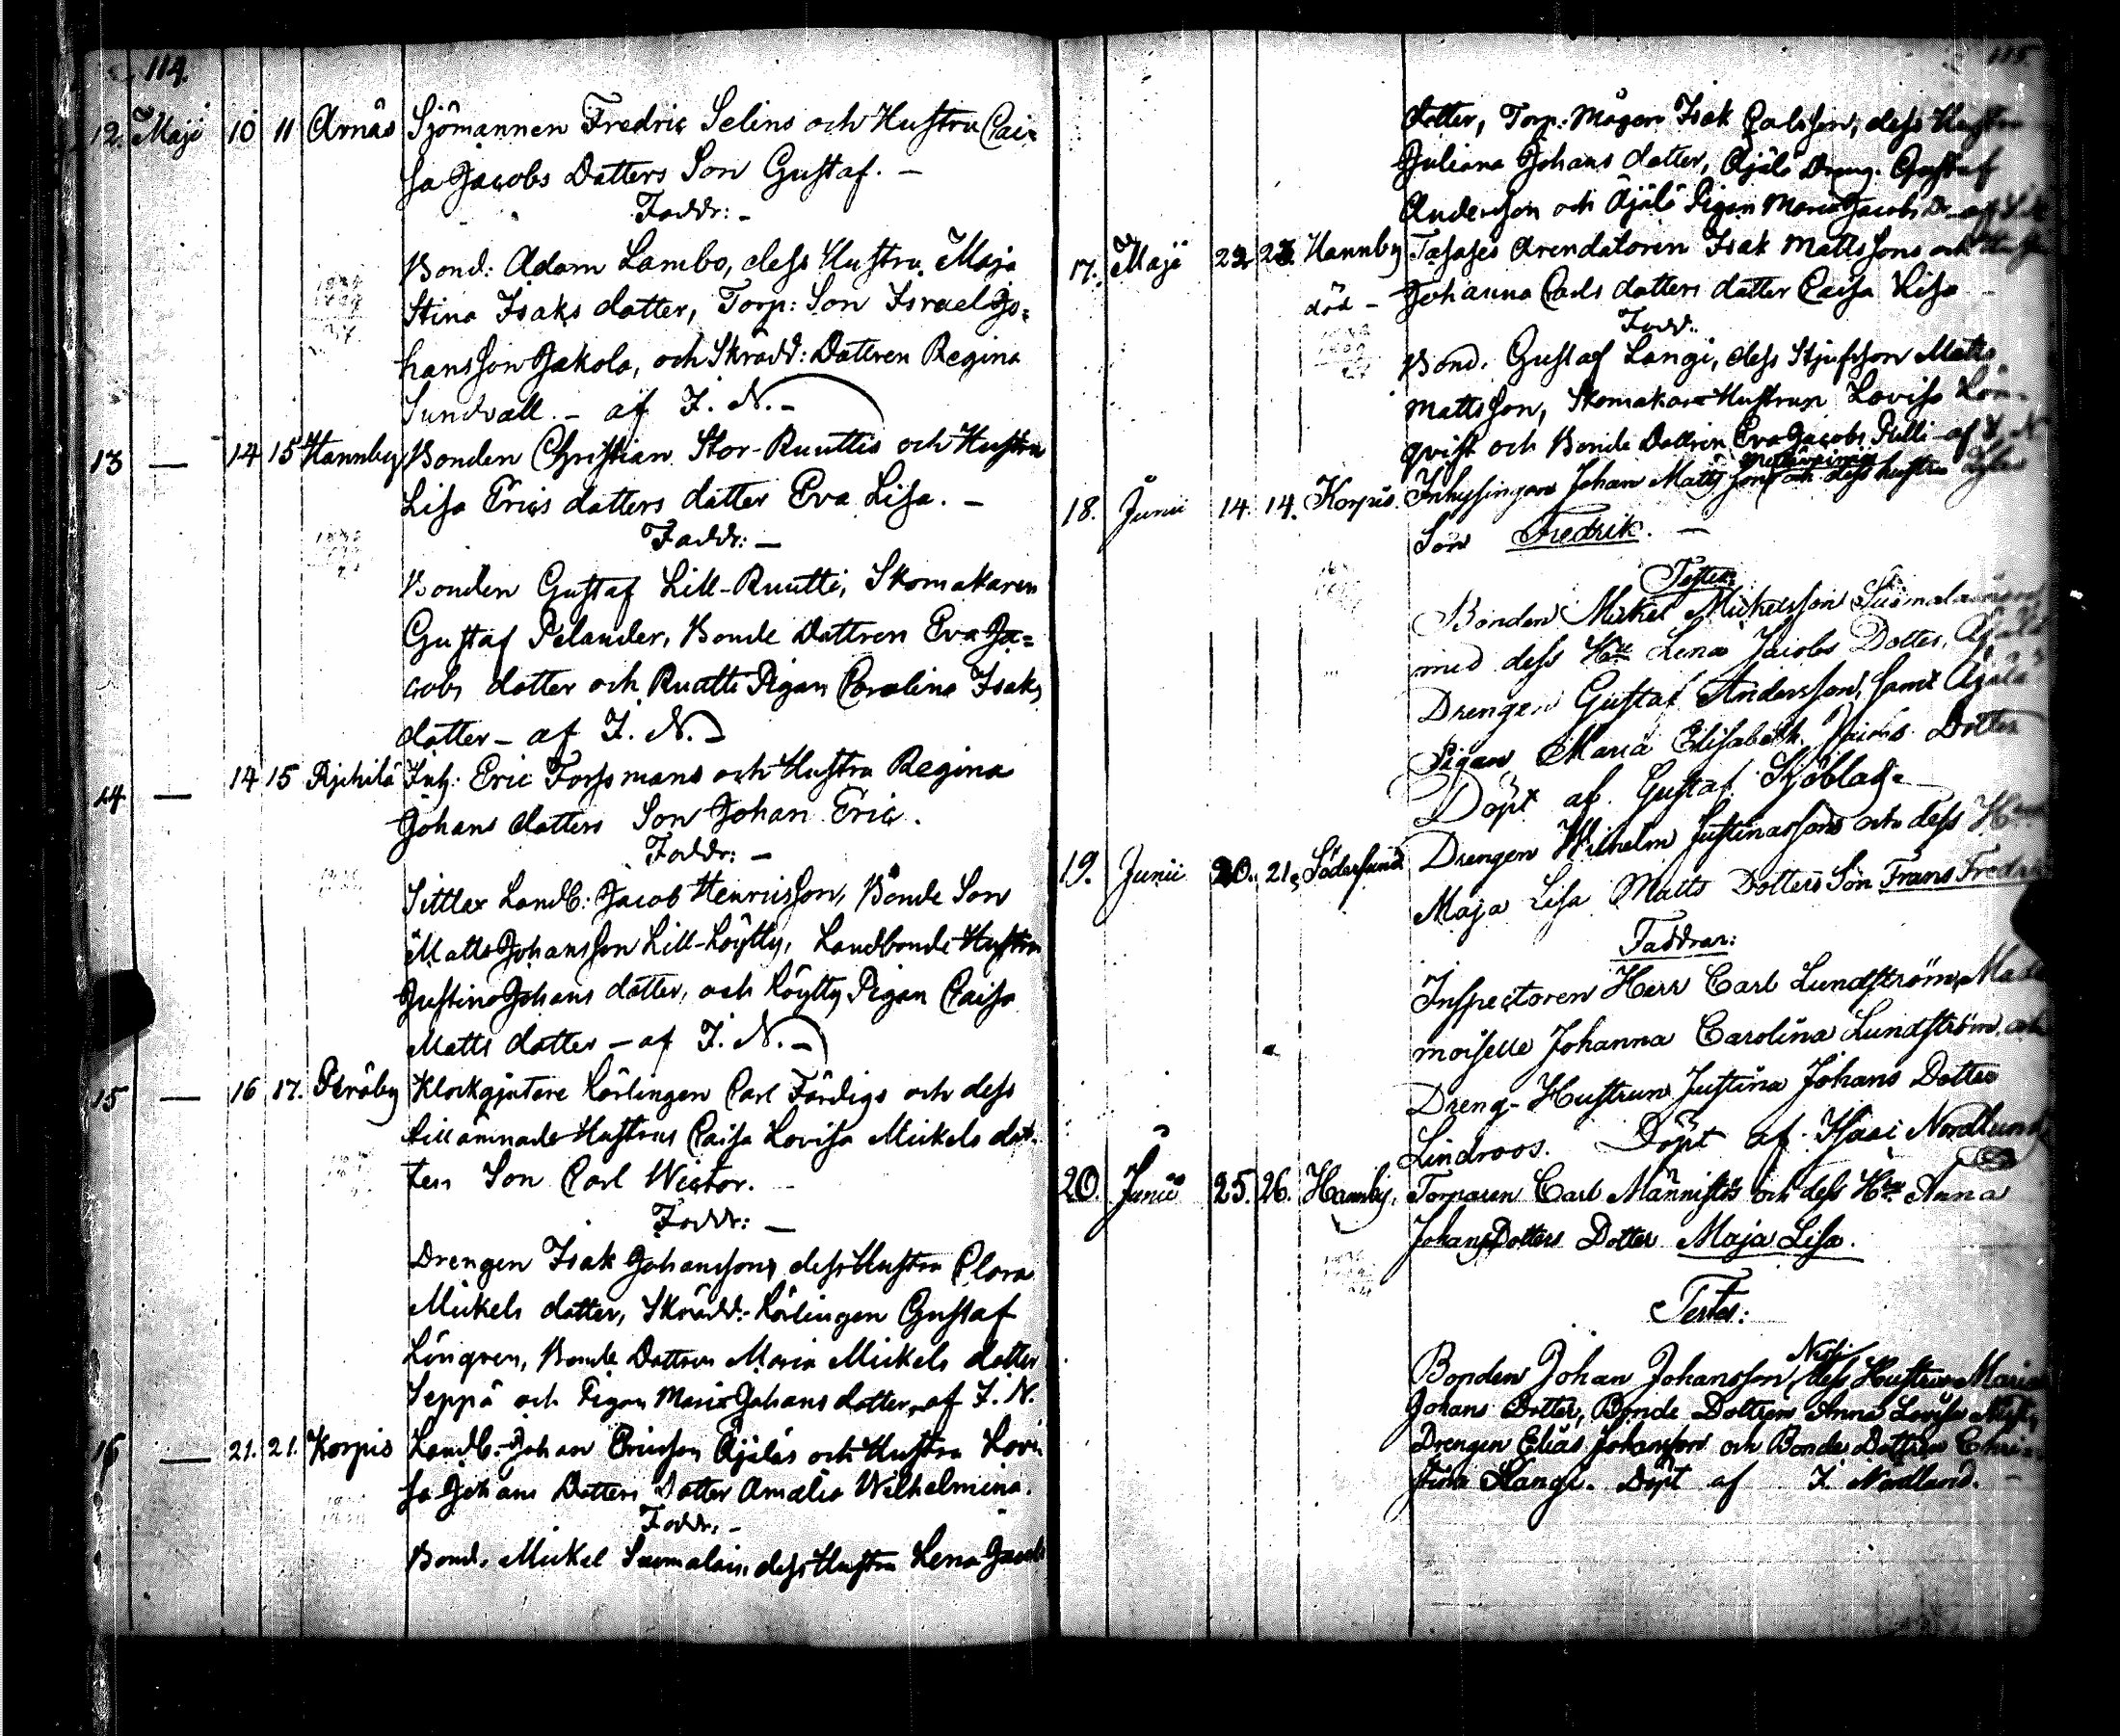 114.
12. Maji 10 11 Arnäs Sjömannen Fredric Selins och Hustru Cai=
sa Jacobs Dotters Son Gustaf. –
Faddr: –
Bond: Adam Lambo, dess Hustru Maja
Stina Isaks dotter, Torp: Son Israel Jo=
hansson Jakola, och Skrädd: Dottren Regina
Sundvall. – af I. N. –
13 — 14 15 Hannby Bonden Christian Stor-Ruuttis och Hustru
Lisa Erics dotters dotter Eva Lisa. –
Faddr: –
Bonden Gustaf Lill-Ruutti, Skomakaren
Gustaf Pelander, Bonde Dottren Eva Ja=
cobs dotter och Ruutti Pigan Carolina Isaks
dotter – af I. N. –
14 — 14 15 Pjchilä Inh: Eric Forssmans och Hustru Regina
Johans dotters Son Johan Eric.
Faddr: –
Sittlax Landb: Jacob Henricsson, Bonde Son
Matts Johansson Lill-Köytty, Landbonde Hustru
Justina Johans dotter, och Köytty Pigan Caisa
Matts dotter – af I. N. –
15 — 16 17. Peräby Klockgjutare Lärlingen Carl Färdigs och dess
tillämnade Hustrus Caisa Lovisa Mickels dot=
ters Son Carl Wictor.
Faddr: –
Drengen Isak Johansson, dess Hustru Clara
Mickels dotter, Skrädd: Lärlingen Gustaf
Löngren, Bonde Dottren Maria Mickels dotter
Seppä och Pigan Maria Johans dotter, af I. N.
16 — 21. 21. Korpis Landb: Johan Ericsson Äjäläs och Hustru Lovi
sa Johans Dotters Dotter Amalia Wilhelmina.
Faddr: –
Bond. Mickel Suomalain, dess Hustru Lena Jacobs
115
dotter, Torp: Mågen Isak Carlsson, dess Hustru
Juliana Johans dotter, Äjälä Dreng. Gustaf
Andersson och Äjälä Pigan Maria Jacobs Dr. af I. N.
17. Maji 22 23 Hannby Tasases Arendatoren Isak Mattssons och Hustru
död – Johanna Carls dotters dotter Caisa Lisa
Fadd:
Bond. Gustaf Langi, dess Stjufsson Matts
Mattsson, Skomakare Hustrun Lovisa Lön=
qvist och Bonde Dottren Eva Jacobs Pelli – af I. N
18. Junii 14. 14. Korpis. Inhysingen Johan Mattssons och dess hustru
Son Fredrik. –
Testes:
Bonden Mickel Mickelsson Suomalainen
med dess Hu Lena Jacobs Dotter, Äjälä
Drengen Gustaf Andersson, samt Äjälä
Pigan Maria Elisabeth Jacobs Dotter
Döpt af Gustaf Sjöblad.
19. Junii 20. 21. Södersund Drengen Wilhelm Justinassons och dess
Maja Lisa Matts Dotters Son Frans Fredric
Faddrar:
Inspectoren Herr Carl Lundström, Made
moiselle Johanna Carolina Lundström och
Dreng-Hustrun Justina Johans Dotter
Lindroos. Döpt af Isaac Nordlund
20. Junii 25. 26. Hannby. Torparen Carl Männistös och dess Hu Anna
Johans Dotters Dotter Maja Lisa.
Testes:
Bonden Johan Johansson Nisti, dess Hustru Maria
Johans Dotter, Bonde Dottren Anna Lovisa Nisti,
Drengen Elias Johansson och Bonde Dottren Chri
stina Langi. Döpt af I. Nordlund. –